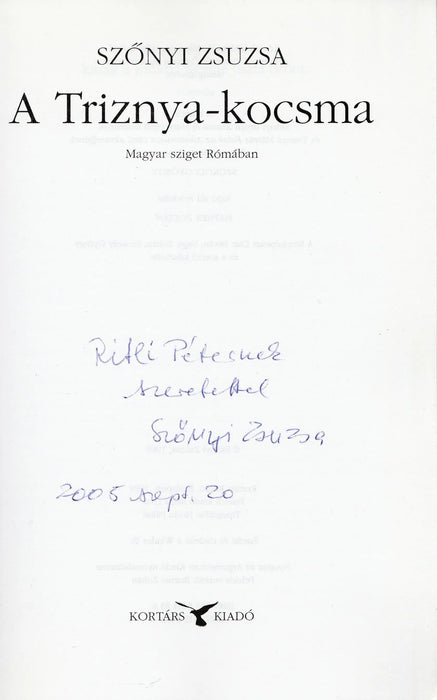 SZŐNYI ZSUZSA
A Triznya-kocsma
Magyar sziget Rómában
Ritli Péternek
szeretettel
Szőnyi Zsuzsa
2005 szept. 20
KORTÁRS KIADÓ